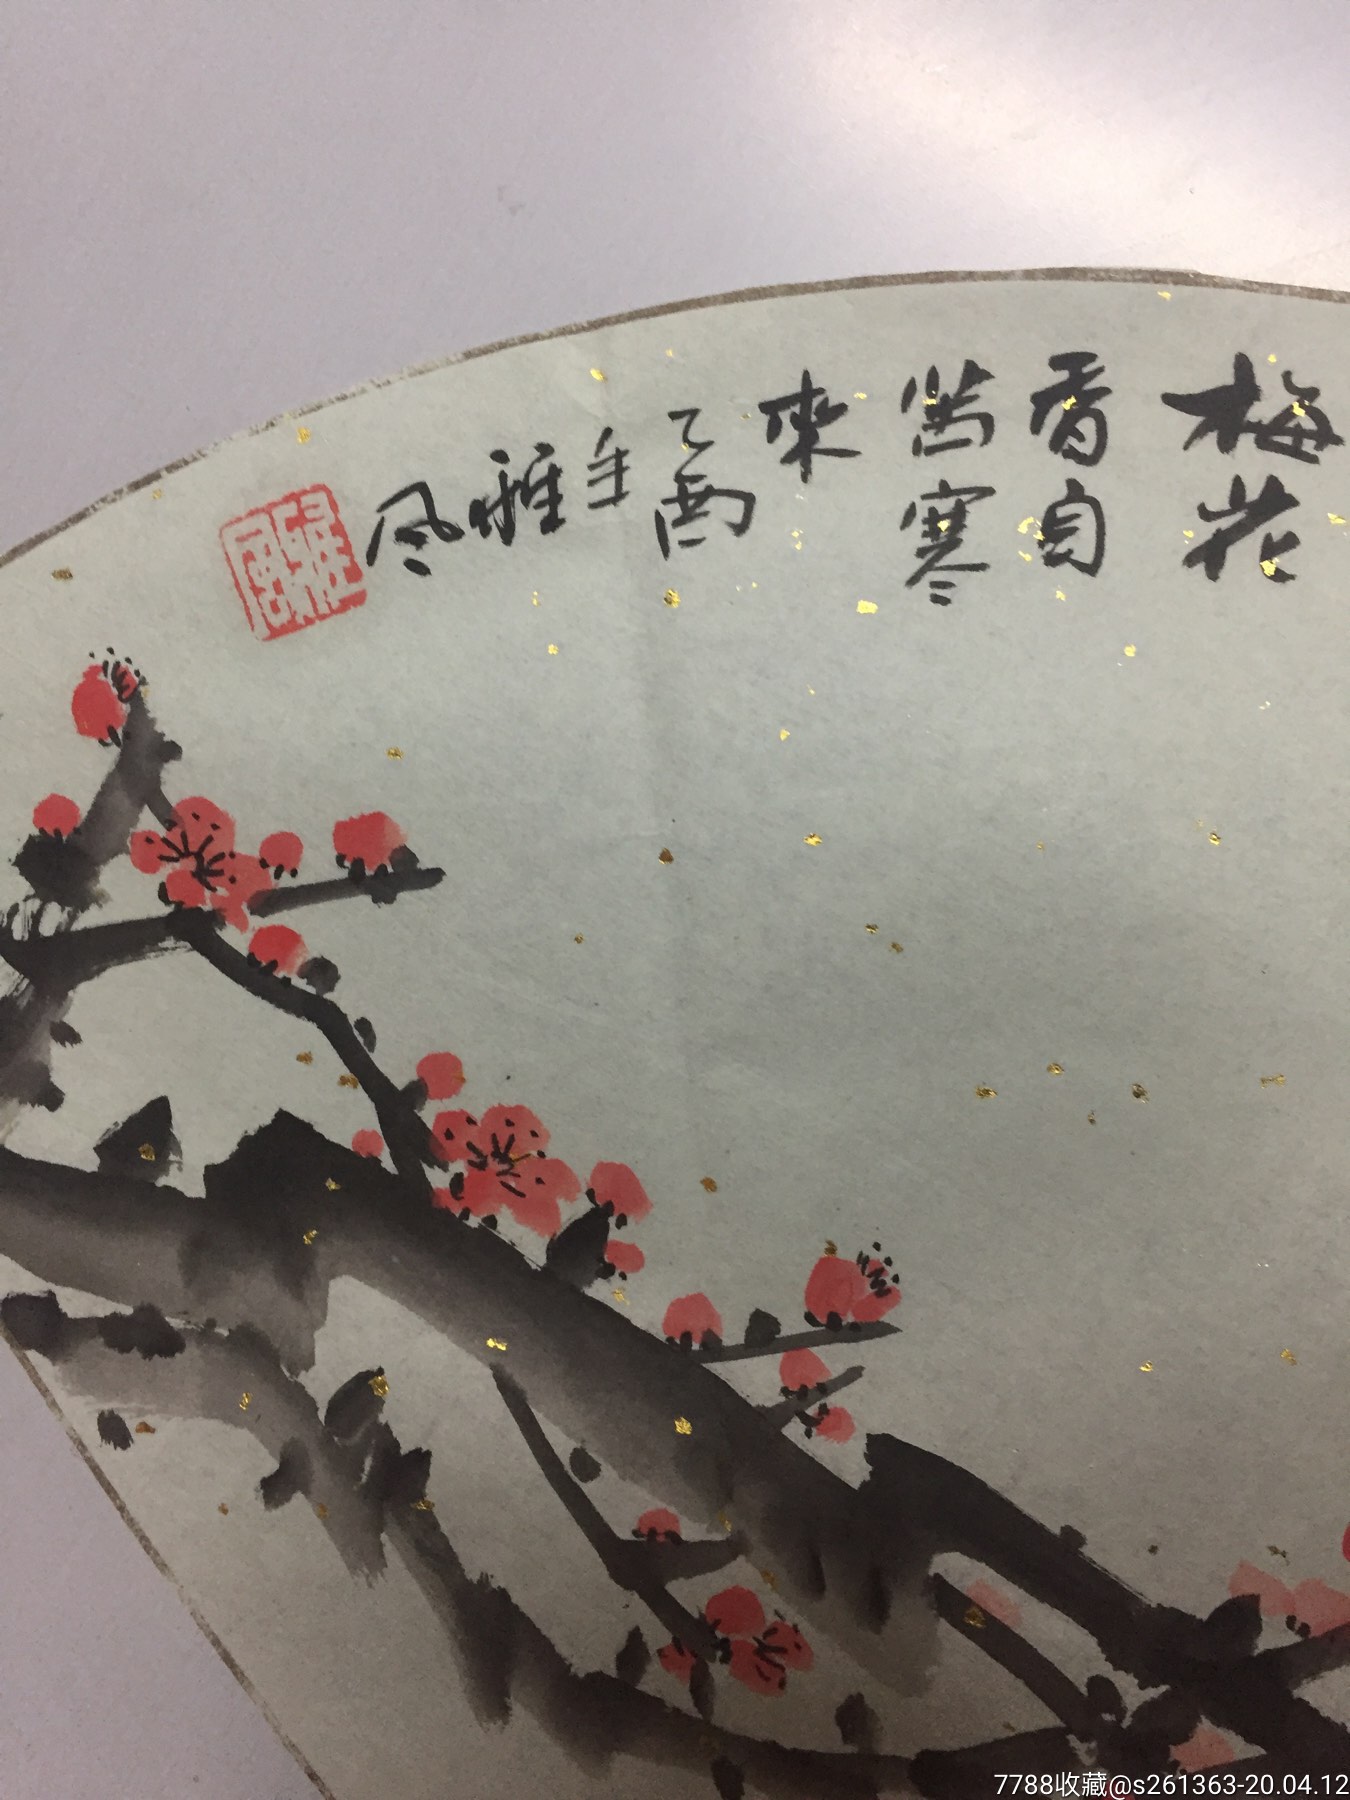 梅花
香自
苦寒
來
乙酉
年
雅
风
7788收藏@s261363-20.04.12